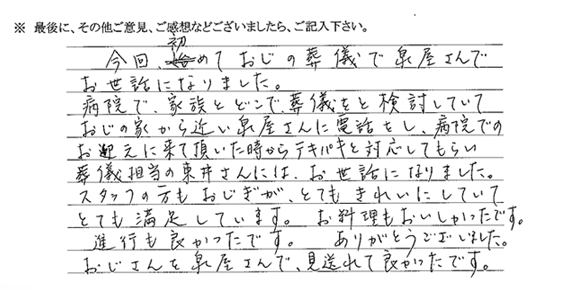 ※ 最後に、その他ご意見、ご感想などございましたら、ご記入下さい。
今回、初めて おじの葬儀で泉屋さんで
お世話になりました。
病院で、家族とどこで、葬儀をと検討していて
おじの家から近い泉屋さんに電話をし、病院での
お迎えに来て頂いた時からテキパキと対応してもらい
葬儀担当の東井さんには、お世話になりました。
スタッフの方も おじぎが、とてもきれいにしていて
とても満足しています。 お料理もおいしかったです。
進行も良かったです。 ありがとうございました。
おじさんを泉屋さんで、見送れて良かったです。